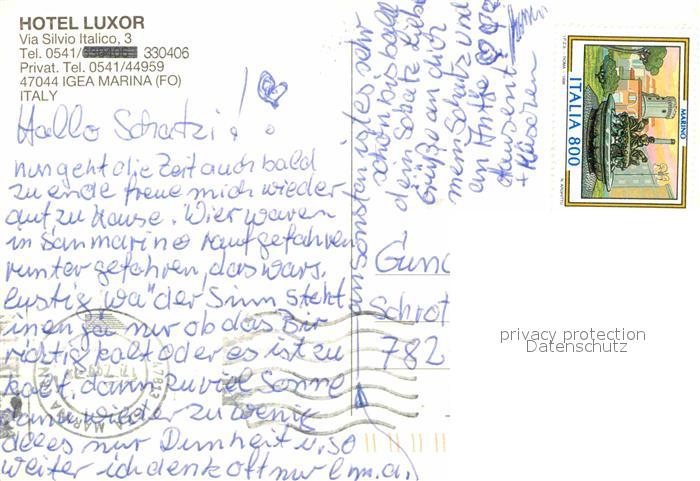 HOTEL LUXOR
Via Silvio Italico, 3
Tel. 0541/ 330406
Privat. Tel. 0541/44959
47044 IGEA MARINA (FO)
ITALY
Hallo Schatzi!
nun geht die Zeit auch bald
zu ende freue mich wieder
auf zu Hause. Wier waren
in San marino rauf gefahren
runter gefahren, das wars.
lustig wa der Sinn steht
inen ja nur ob das Bir
richtig kalt oder es ist zu
kalt, dann zu viel Sonne
dann wieder zu wenig
alles nur Dumheit u. so
weiter ich denk oft nur l.m.a.
ansonsten ist es sehr
schön bis bald
dein Schatz Liebe
Grüße an dich
mein Schatz und
an
tausent
+ Häschen
Gun
Schrot
782
I.P.Z.S. ROMA
MARINO
ITALIA 800
privacy protection
Datenschutz